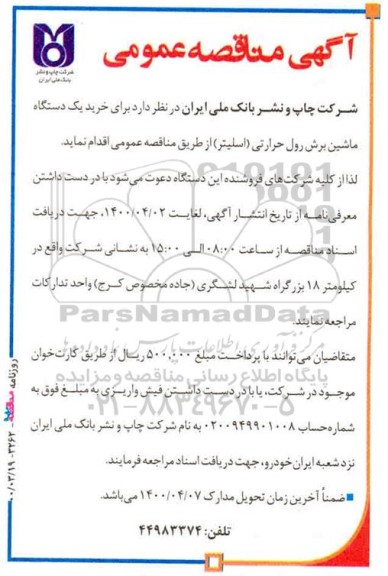 آگهی مناقصه عمومی
شرکت چاپ و نشر
بانک ملی ایران
شرکت چاپ و نشر بانک ملی ایران در نظر دارد برای خرید یک دستگاه
ماشین برش رول حرارتی (اسلیتر) از طریق مناقصه عمومی اقدام نماید.
لذا از کلیه شرکت‌های فروشنده این دستگاه دعوت می‌شود با در دست داشتن
معرفی‌نامه از تاریخ انتشار آگهی، لغایت ۱۴۰۰/۰۴/۰۲، جهت دریافت
اسناد مناقصه از ساعت ۰۸:۰۰ الی ۱۵:۰۰ به نشانی شرکت واقع در
کیلومتر ۱۸ بزرگراه شهید لشگری (جاده مخصوص کرج) واحد تدارکات
مراجعه نمایند.
ParsNamadData
متقاضیان می‌توانند با پرداخت مبلغ ۵۰۰,۰۰۰ ریال از طریق کارت‌خوان
پایگاه اطلاع رسانی مناقصه و مزایده
موجود در شرکت، یا با در دست داشتن فیش واریزی به مبلغ فوق به
۰۲۱-۸۸۳۴۹۶۷۰-۵
شماره حساب ۰۲۰۰۹۴۹۹۰۱۰۰۸ به نام شرکت چاپ و نشر بانک ملی ایران
نزد شعبه ایران خودرو، جهت دریافت اسناد مراجعه فرمایند.
ضمناً آخرین زمان تحویل مدارک ۱۴۰۰/۰۴/۰۷ می‌باشد.
تلفن: ۴۴۹۸۳۳۷۴
روزنامه مناقصه ۳۲۶۲- ۰۰/۰۳/۱۹